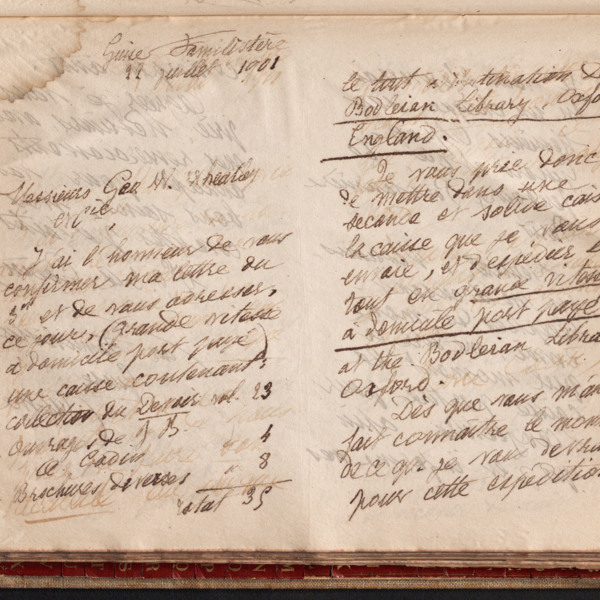 Guise Familistère
11 juillet 1901
Messieurs Geo W. Wheatley
& Cie,
J'ai l'honneur de vous
confirmer ma lettre du
3 ct et de vous adresser,
ce jour, (Grande vitesse
à domicile port payé)
une caisse contenant:
collection du Devoir vol. 23
Ouvrages de J. B.
te Godin " 4
Brochures diverses " 8
Total 35
le tout à destination
Bodleian Library, Oxfo
England.
Je vous prie donc
de mettre dans une
seconde et solide cais
la caisse que je vous
envoie, et d'expédier
tout en grande vitess
à domicile port payé
at the Bodleian Libra
Oxford.
Dès que vous m'au
fait connaître le mon
de ce que je vous devrai
pour cette expédition